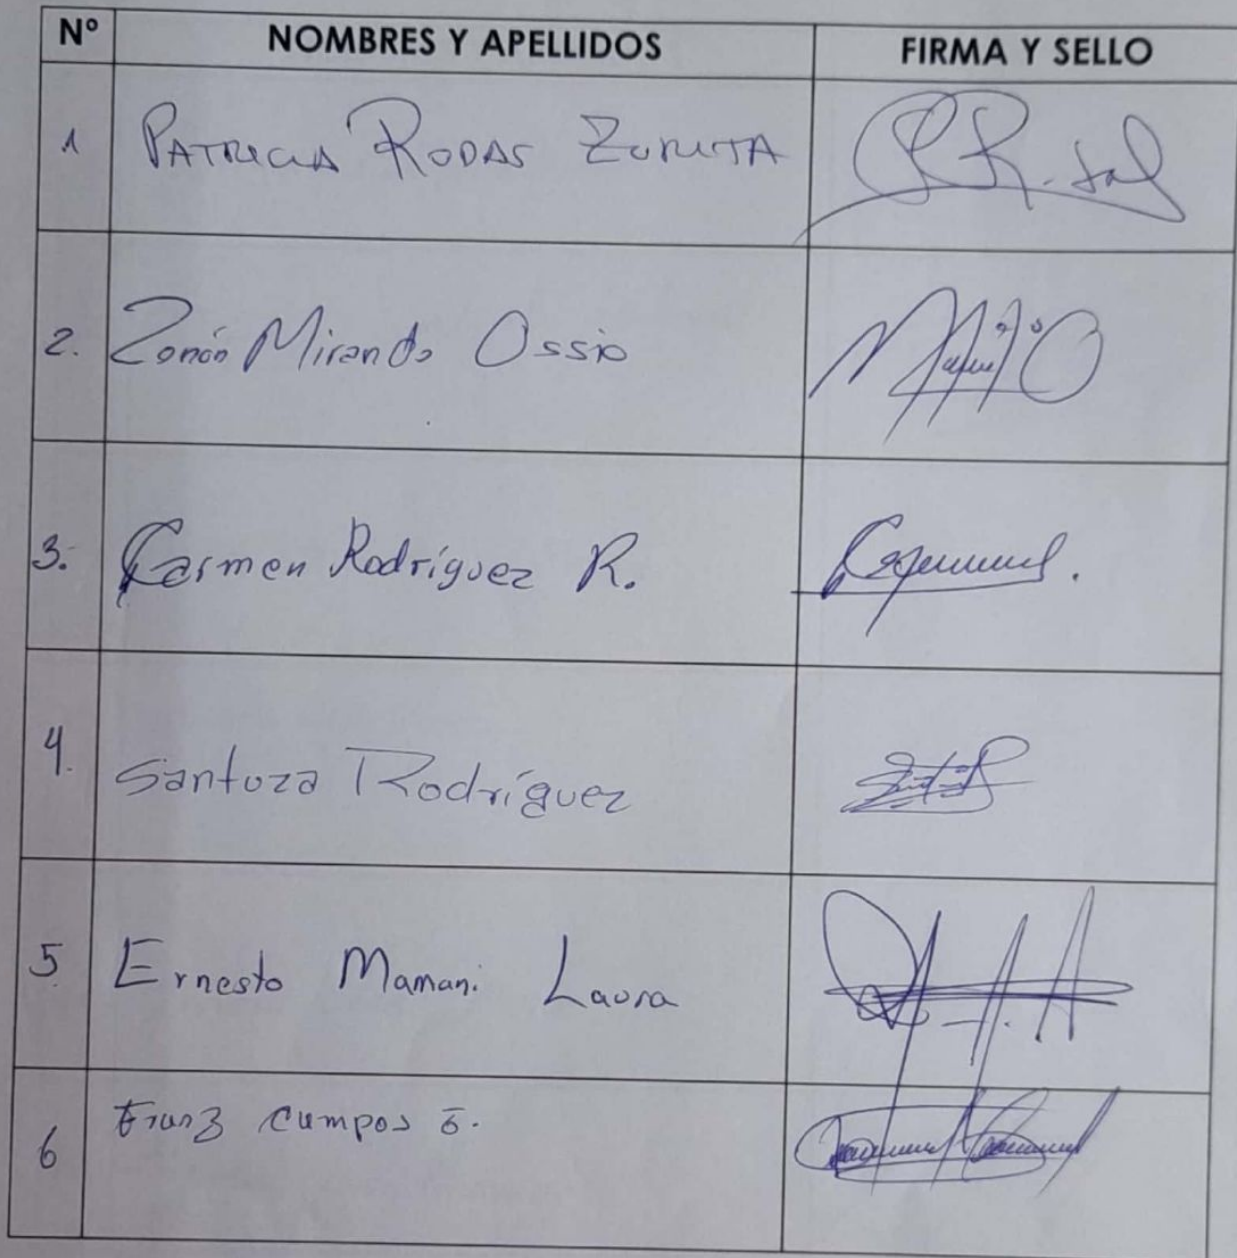 Nº NOMBRES Y APELLIDOS FIRMA Y SELLO
1 PATRICIA RODAS ZURITA
2. Zonón Miranda Ossio
3. Carmen Rodríguez R.
4. Santuza Rodríguez
5 Ernesto Mamani Laura
6 Franz Campos E.